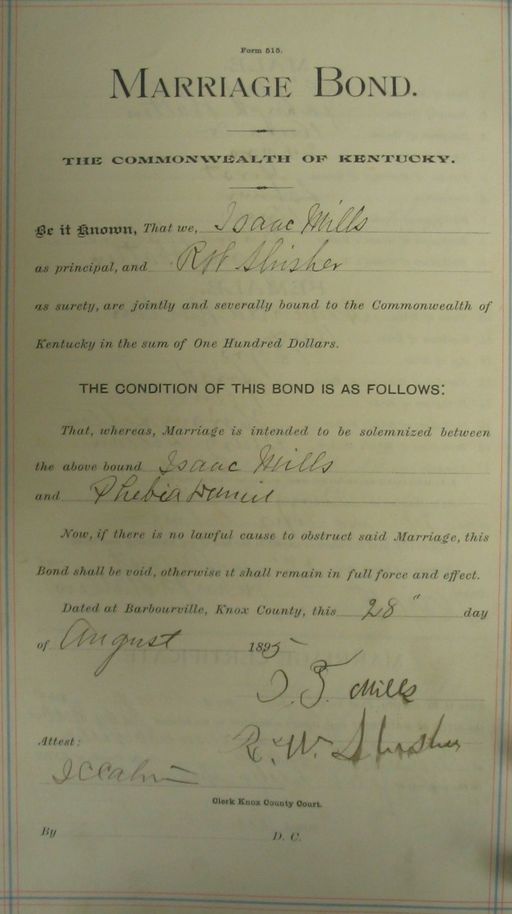 Form 515.
MARRIAGE BOND.
THE COMMONWEALTH OF KENTUCKY.
Be it Known, That we, Isaac Mills
as principal, and R W Slusher
as surety, are jointly and severally bound to the Commonwealth of
Kentucky in the sum of One Hundred Dollars.
THE CONDITION OF THIS BOND IS AS FOLLOWS:
That, whereas, Marriage is intended to be solemnized between
the above bound Isaac Mills
and Phebia
Now, if there is no lawful cause to obstruct said Marriage, this
Bond shall be void, otherwise it shall remain in full force and effect.
Dated at Barbourville, Knox County, this 28" day
of August 1895
Mills
R. W. Slusher
Attest:
Clerk Knox County Court.
By D. C.